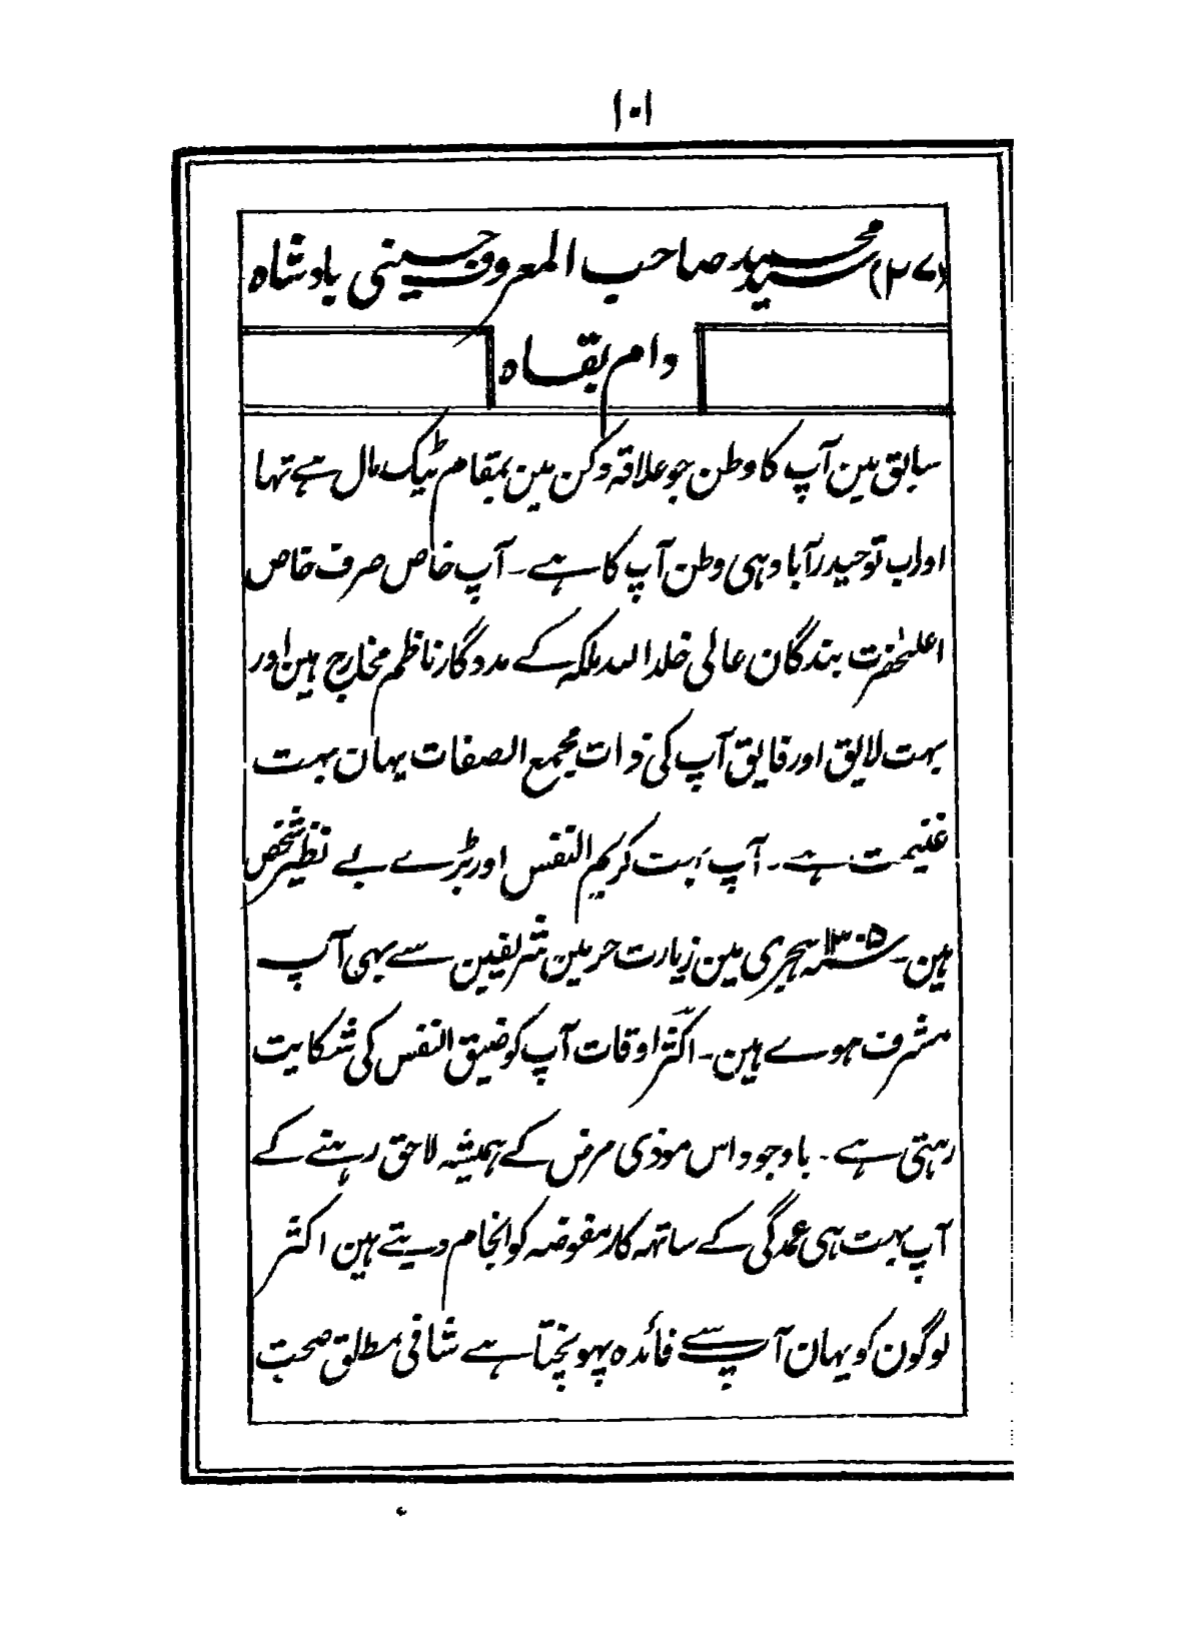 ۱۰۱
(۲۷) سید محمد صاحب المعروف حسینی بادشاہ
دام بقاہ
سابق مین آپ کا وطن جو علاقہ دکن مین بمقام ٹیک مال ہے تہا
اور اب تو حیدرآباد ہی وطن آپ کا ہے ۔ آپ خاص صرف خاص
اعلیٰحضرت بندگان عالی خلد اللہ ملکہ کے مددگار ناظم مخارج ہین اور
بہت لایق اور فایق آپ کی ذات مجمع الصفات یہان بہت
غنیمت ہے ۔ آپ بہت کریم النفس اور بڑے بے نظیر شخص
ہین ۔ ۱۳۰۵ سنہ ہجری مین زیارت حرمین شریفین سے بہی آپ
مشرف ہوے ہین ۔ اکثر اوقات آپ کو ضیق النفس کی شکایت
رہتی ہے ۔ باوجود اس موذی مرض کے ہمیشہ لاحق رہنے کے
آپ بہت ہی عمدگی کے ساتہہ کار مفوضہ کو انجام دیتے ہین اکثر
لوگون کو یہان آپ سے فائدہ پہونچتا ہے شافی مطلق صحت